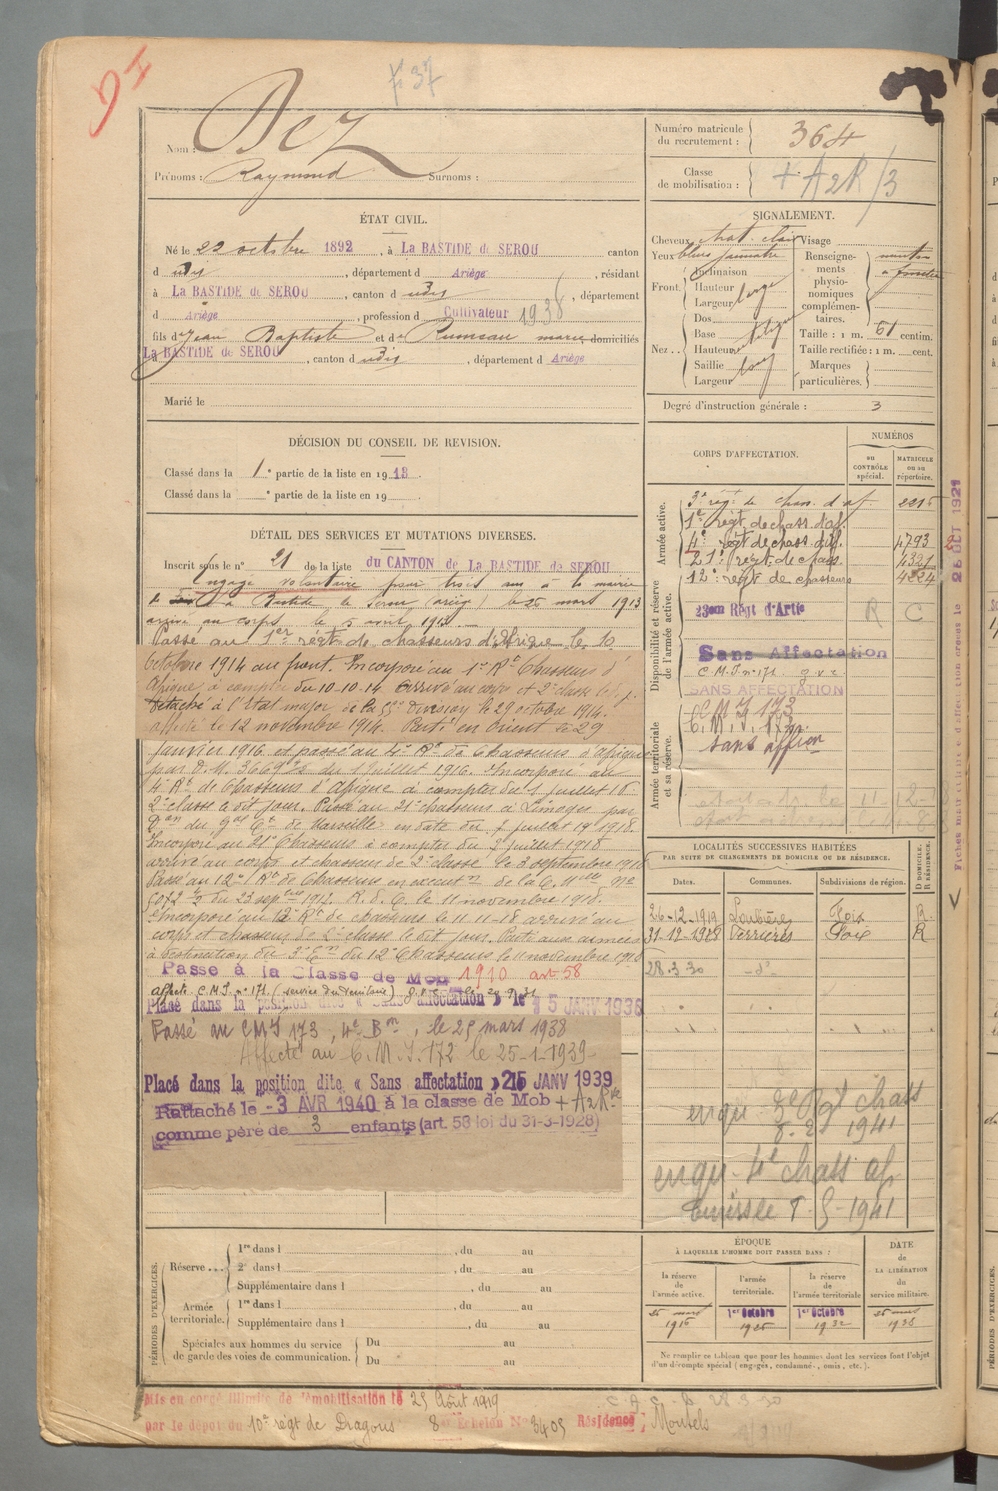 f° 37
Nom : Dez
Prénoms : Raymond Surnoms :
Numéro matricule du recrutement : 364
Classe de mobilisation : + A2R/3
ÉTAT CIVIL.
Né le 22 octobre 1892, à La BASTIDE de SEROU canton
d udit, département d Ariège, résidant
à La BASTIDE de SEROU, canton d udit, département
d Ariège, profession d Cultivateur 1938
fils de Jean Baptiste et de Rumeau marie domiciliés
La BASTIDE de SEROU, canton d udit, département d Ariège
Marié le
SIGNALEMENT.
Cheveux chat. clair Visage
Yeux bleus jaunâtre Renseignements physionomiques complémentaires.
menton à fossette
Front. Inclinaison
Hauteur
Largeur large
Nez. Dos
Base
Hauteur
Saillie
Largeur
Taille : 1 m. 61 centim.
Taille rectifiée : 1 m. cent.
Marques particulières.
Degré d'instruction générale : 3
DÉCISION DU CONSEIL DE REVISION.
Classé dans la 1e partie de la liste en 1913.
Classé dans la e partie de la liste en 19
DÉTAIL DES SERVICES ET MUTATIONS DIVERSES.
Inscrit sous le n° 21 de la liste du CANTON de La BASTIDE de SEROU
Engagé volontaire pour trois ans à la mairie
de La Bastide de Serou (ariège) le 26 mars 1913
arrivé au corps le 5 avril 1913.
Passé au 1er régt de chasseurs d'Afrique le 10
Octobre 1914 au front. Incorporé au 1er Rt Chasseurs d'
Afrique à compter du 10-10-14 Arrivé au corps et 2e classe
détaché à l'Etat major de la Division le 29 octobre 1914.
affecté le 12 novembre 1914. Parti en Orient le 29
Janvier 1916 et passé au 4e Rt de Chasseurs d'Afrique
par D.M. 3669 du 1 Juillet 1916. Incorporé au
4e Rt de Chasseurs d'Afrique à compter du 1 juillet 16
2e classe le dit jour. Passé au 21e chasseurs à Limoges par
de Marseille en date du juillet 1918.
Incorporé au 21e Chasseurs à compter du juillet 1918
arrivé au corps et chasseur de 2e classe le 3 septembre 1918
Passé au 12e Rt de Chasseurs en execut on de la C. Mlle no
5072 du 23 septbre 1918. R. d. C. le 11 novembre 1918.
Incorporé au 12e Rt de chasseurs le 11-11-18 arrivé au
corps et chasseur de 2e classe le dit jour. Parti aux armées
à destination du 3e du 12e Chasseurs le 11 novembre 1918
Passé à la Classe de Mob 1910 art 58
affecté C.M.I. n° 171. (service du territoire)
Placé dans la position dite « Sans affectation » le 15 JANV 1936
Passé au CMI 173, 4e Bon, le 25 mars 1938
Affecté au C.M.I. 172 le 25-1-1939
Placé dans la position dite « Sans affectation » 25 JANV 1939
Rattaché le -3 AVR 1940 à la classe de Mob + A2R
comme père de 3 enfants (art. 58 loi du 31-3-1928)
CORPS D'AFFECTATION.
NUMÉROS
au CONTRÔLE spécial.
MATRICULE ou au répertoire.
Armée active.
3e rég. de chass. d'af. 2215
1er régt de chass. d'af.
4e régt de chass. d'af. 4793
21e régt de chass. 4321
12e régt de chasseurs 4224
Disponibilité et réserve de l'armée active.
23em Régt d'Artie R C
Sans Affectation
C.M.I. n° 171
SANS AFFECTATION
Armée territoriale et sa réserve.
C.M.I 173
C.M.I. 172
sans affion
Fiches matricule d'affection créés le 26 OCT 1921
LOCALITÉS SUCCESSIVES HABITÉES
PAR SUITE DE CHANGEMENTS DE DOMICILE OU DE RÉSIDENCE.
Dates. Communes. Subdivisions de région. D DOMICILE. R RÉSIDENCE.
26-12-1919 Loubières Foix R.
31-12-1928 Vernières Foix R
28.3.30 -d°-
enqu 3e Rgt chass
8-2 1941
enqu- 4e chass af
Tunisie 1941
PÉRIODES D'EXERCICES.
Réserve...
1re dans l , du au
2e dans l , du au
Supplémentaire dans l , du au
Armée territoriale.
1re dans l , du au
Supplémentaire dans l , du au
Spéciales aux hommes du service de garde des voies de communication.
Du au
Du au
ÉPOQUE
À LAQUELLE L'HOMME DOIT PASSER DANS :
la réserve de l'armée active.
l'armée territoriale.
la réserve de l'armée territoriale
DATE de LA LIBÉRATION du service militaire.
25 mars 1916
1er Octobre 1926
1er Octobre 1932
25 mars 1938
Ne remplir ce tableau que pour les hommes dont les services font l'objet
d'un décompte spécial (engagés, condamnés, omis, etc.).
Mis en congé illimité de démobilisation le 25 Août 1919
par le dépôt du 10e régt de Dragons 8e Echelon N° 3405 Résidence : Montels